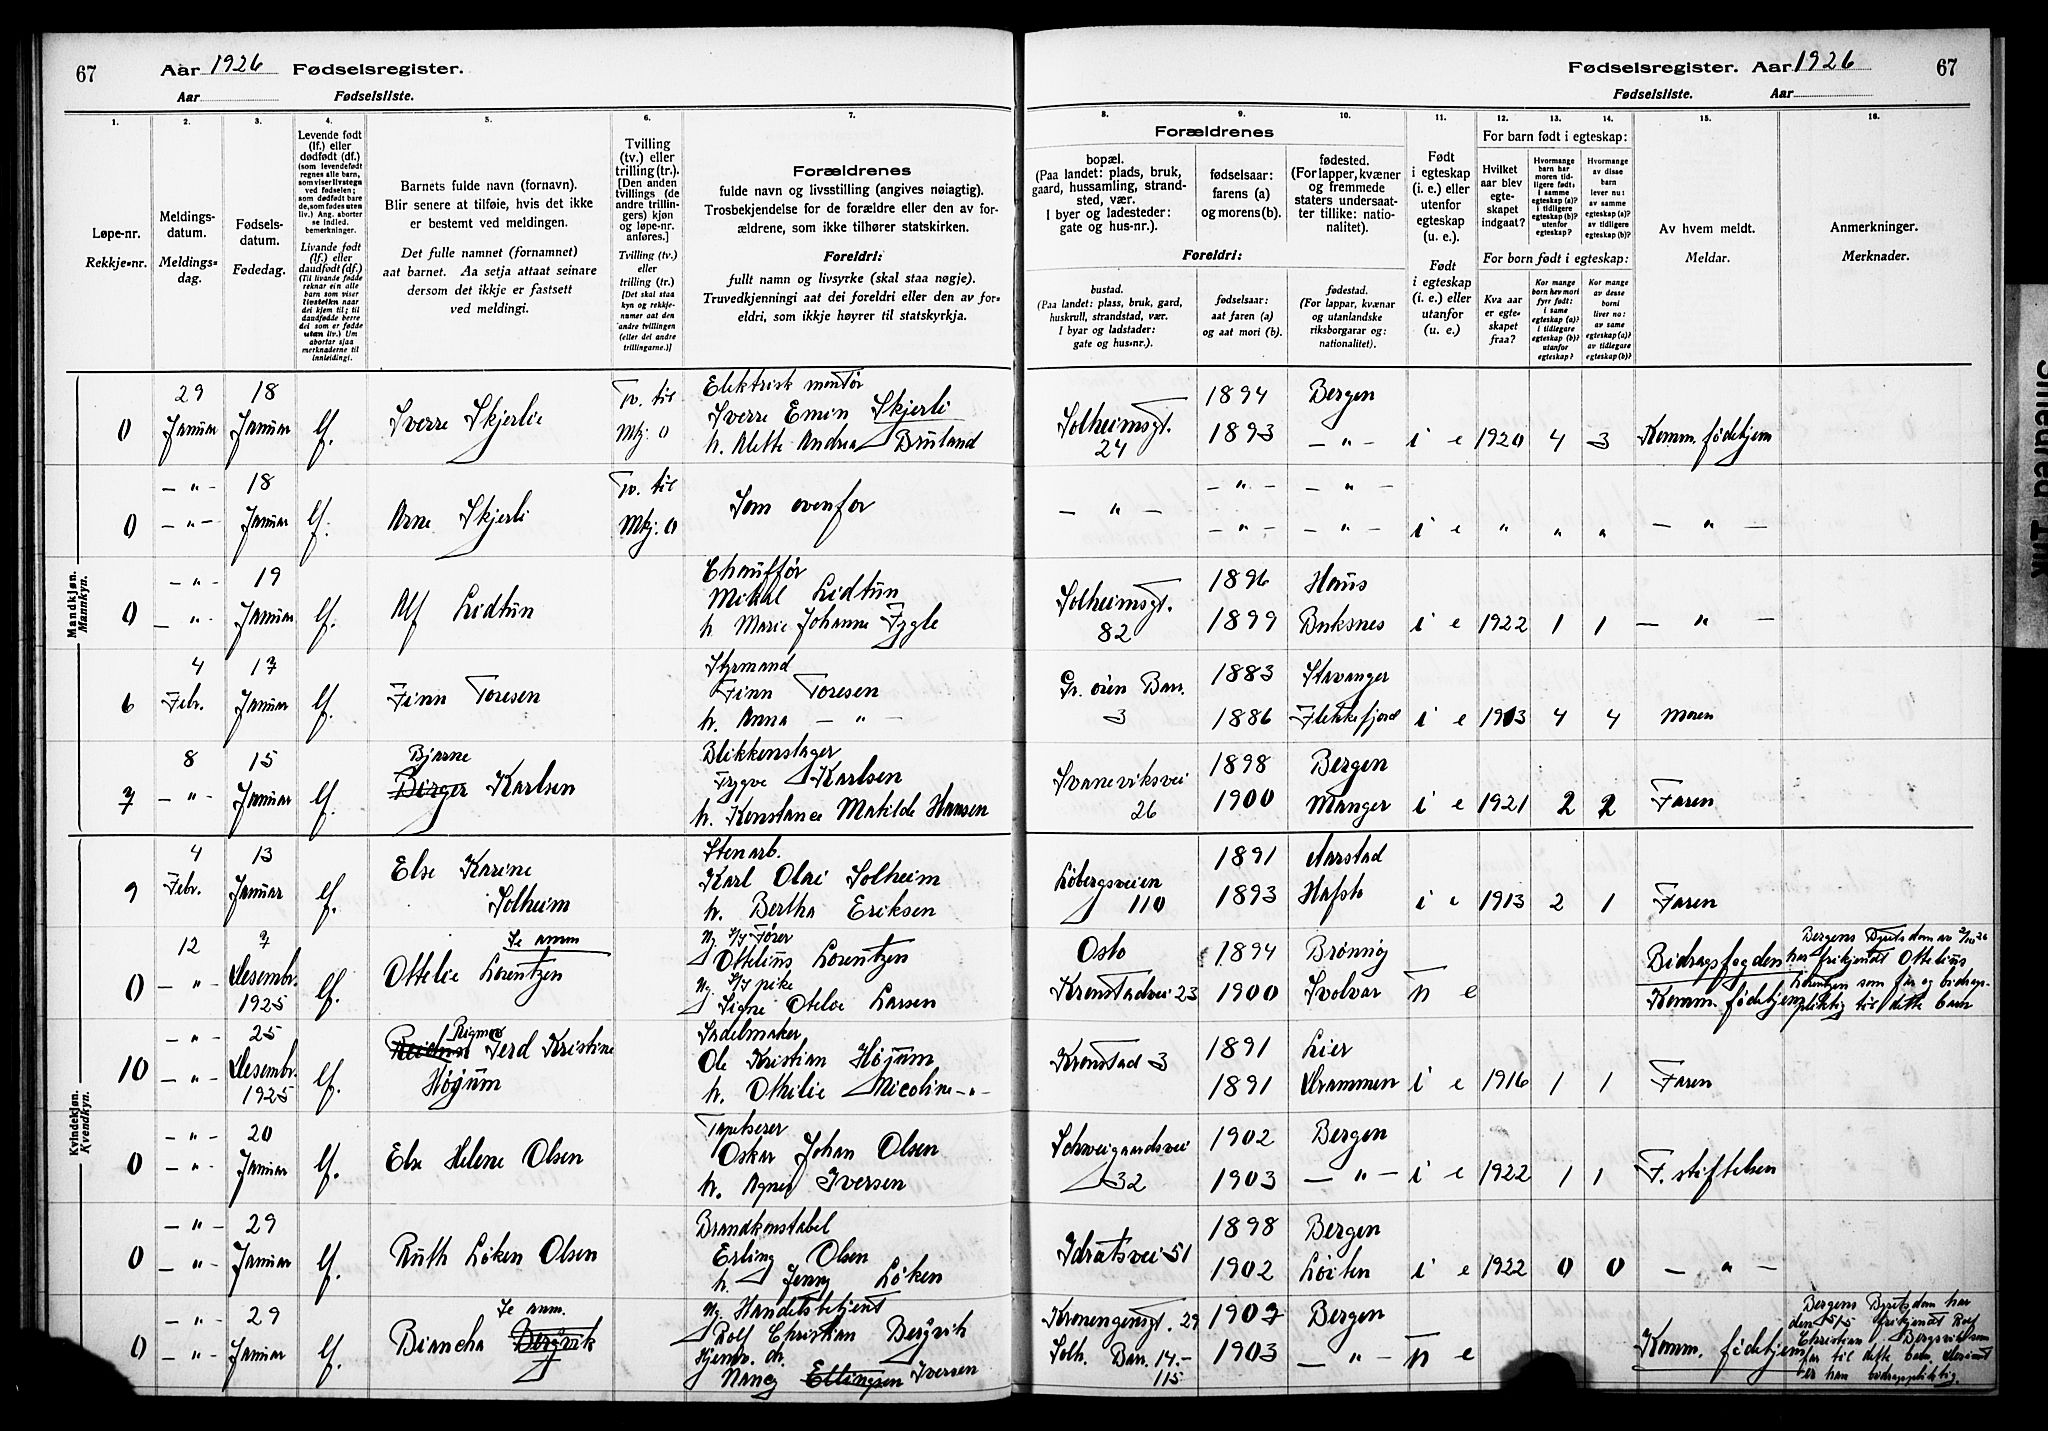 67 Aar 1926 Fødselsregister.
Aar Fødselsliste.
Fødselsregister. Aar 1926 67
Fødselsliste. Aar
1. 2. 3. 4. 5. 6. 7. 8. 9. 10. 11. 12. 13. 14. 15. 16.
Løpe-nr.
Rekkje-nr.
Meldings-
datum.
Meldings-
dag.
Fødsels-
datum.
Fødedag.
Levende født
(lf.) eller
dødfødt (df.)
(som levendefødt
regnes alle barn,
som viser livstegn
ved fødselen;
som dødfødt bare
de, som fødes uten
liv.) Ang. aborter
se indled.
bemerkninger.
Livande født
(lf.) eller
daudfødt (df.)
(Til livande fødde
reknar ein alle
barn som viser
livsteikn naar
dei kjem til; til
daudfødde berre
dei som er fødde
utan liv.) Um
abortar sjaa
merknaderne til
innleidingi.
Barnets fulde navn (fornavn).
Blir senere at tilføie, hvis det ikke
er bestemt ved meldingen.
Det fulle namnet (fornamnet)
aat barnet. Aa setja attaat seinare
dersom det ikkje er fastsett
ved meldingi.
Tvilling
(tv.) eller
trilling (tr.).
[Den anden
tvillings (de
andre trillin-
gers) kjøn
og løpe-nr.
anføres.]
Tvilling (tv.)
eller
trilling (tr.)
[Det skal staa
kyn og rekkje-
numer aat den
andre tvillingen
(eller dei andre
trillingarne.)]
Forældrenes
fulde navn og livsstilling (angives nøiagtig).
Trosbekjendelse for de forældre eller den av for-
ældrene, som ikke tilhører statskirken.
Foreldri:
fullt namn og livsyrke (skal staa nøgje).
Truvedkjenningi aat dei foreldri eller den av for-
eldri, som ikkje høyrer til statskyrkja.
Forældrenes
bopæl.
(Paa landet: plads, bruk,
gaard, hussamling, strand-
sted, vær.
I byer og ladesteder:
gate og hus-nr.).
Foreldri:
bustad.
(Paa landet: plass, bruk, gard,
huskrull, strandstad, vær.
I byar og ladstader:
gate og hus-nr.).
fødselsaar:
farens (a)
og morens (b).
fødselsaar:
aat faren (a)
og aat mori (b).
fødested.
(For lapper, kvæner
og fremmede
staters undersaat-
ter tillike: natio-
nalitet).
fødestad.
(For lappar, kvænar
og utanlandske
riksborgarar og:
nationalitet).
Født
i egteskap
(i. e.) eller
utenfor
egteskap
(u. e.).
Født
i egteskap
(i. e.) eller
utanfor
(u. e.).
For barn født i egteskap:
Hvilket
aar blev
egte-
skapet
indgaat?
Hvormange
barn har
moren tid-
ligere født:
i samme
egteskap (a)?
i tidligere
egteskap (b)?
utenfor
egteskap?
Hvormange
av disse
barn
lever nu:
av samme
egteskap (a)?
av tidligere
egteskap (b)?
For born født i egteskap:
Kva aar
er egte-
skapet
fraa?
Kor mange
born hev mori
fyrr født:
i same
egteskap (a)?
i tidlegare
egteskap (b)?
utanfor
egteskap?
Kor mange
av desse
borni
liver nu:
av same
egteskap (a)?
av tidlegare
egteskap (b)?
Av hvem meldt.
Meldar.
Anmerkninger.
Merknader.
Mandkjøn.
Mannkyn.
29 18 Tv. til Elektrisk montør 1894 Bergen
0 Januar Januar lf. Sverre Skjerlie Mkj: 0 Sverre Emin Skjerli Solheimsgt. 1893 — " — i e 1920 4 3 Komm. fødehjem
h. Alette Andrea Bruland 24
— " — 18 Tv. til — " — — " —
0 — " — Januar lf. Arne Skjerli Mkj: 0 Som ovenfor — " — — " — — " — i e " " " — " —
— " — 19 Chauffør 1896 Haus
0 — " — Januar lf. Alf Lidtun Mikal Lidtun Solheimsgt. 1899 Buksnes i e 1922 1 1 — " —
h Marie Johanne Fygle 82
4 17 Styrmand 1883 Stavanger
6 Febr. Januar lf. Finn Toresen Finn Toresen Gr. ören Bar. 1886 Flekkefjord i e 1913 4 4 Moren
h. Anna — " — 3
8 15 Bjarne Blikkenslager 1898 Bergen
7 — " — Januar lf. Birger Karlsen Trygve Karlsen Svaneviksvei 1900 Manger i e 1921 2 2 Faren
h. Konstance Matilde Hansen 26
Kvindekjøn.
Kvendkyn.
4 13 Stenarb. 1891 Aarstad
9 Febr. Januar lf. Else Karine Karl Olai Solheim Løbergsveien 1893 Hafslo i e 1913 2 1 Faren
Solheim h. Bertha Eriksen 110
12 7 Se anm Ug. Fører Oslo 1894 Brønnøy Bidragsfogden Bergens Byretsdom av
0 — " — Desembr. lf. Ottelie Lorentzen Ottelius Lorentzen har frikjendt Ottelius
1925 Ug. pike Kronstadvei 23 1900 Svolvær u e Komm. fødehjem Lorentzen som far og bidrags-
Signe Otelie Larsen pliktig til dette barn
— " — 25 Rigmor Sadelmaker 1891 Lier
10 — " — Desembr. lf. Gerd Kristine Ole Kristian Højum Kronstad 3 1891 Drammen i e 1916 1 1 Faren
1925 Højum h. Othilie Nicoline — " —
— " — 20 Tapetserer 1902 Bergen
0 — " — Januar lf. Else Helene Olsen Oskar Johan Olsen Schweigaardsvei 1903 — " — i e 1922 1 1 F. stiftelsen
h. Agnes Iversen 32
— " — 29 Brandkonstabel 1898 Bergen
0 — " — Januar lf. Ruth Løken Olsen Erling Olsen Idrætsvei 51 1902 Løiten i e 1922 0 0 — " —
h. Jenny Løken
— " — 29 Se anm. Ug. Handelsbetjent Kronengensgt. 29 1907 Bergen Bergens Byretsdom har
0 — " — Januar lf. Biancha Bergvik Rolf Christian Bergvik den 5/5 frikjendt Rolf
Hjemv. dr. Solh. Bar. 14.— 1903 — " — u e Komm. fødehjem Christian Bergsvik som
Nancy Ellingsen Iversen 115 far til dette barn. Derimot
er han bidragspliktig.